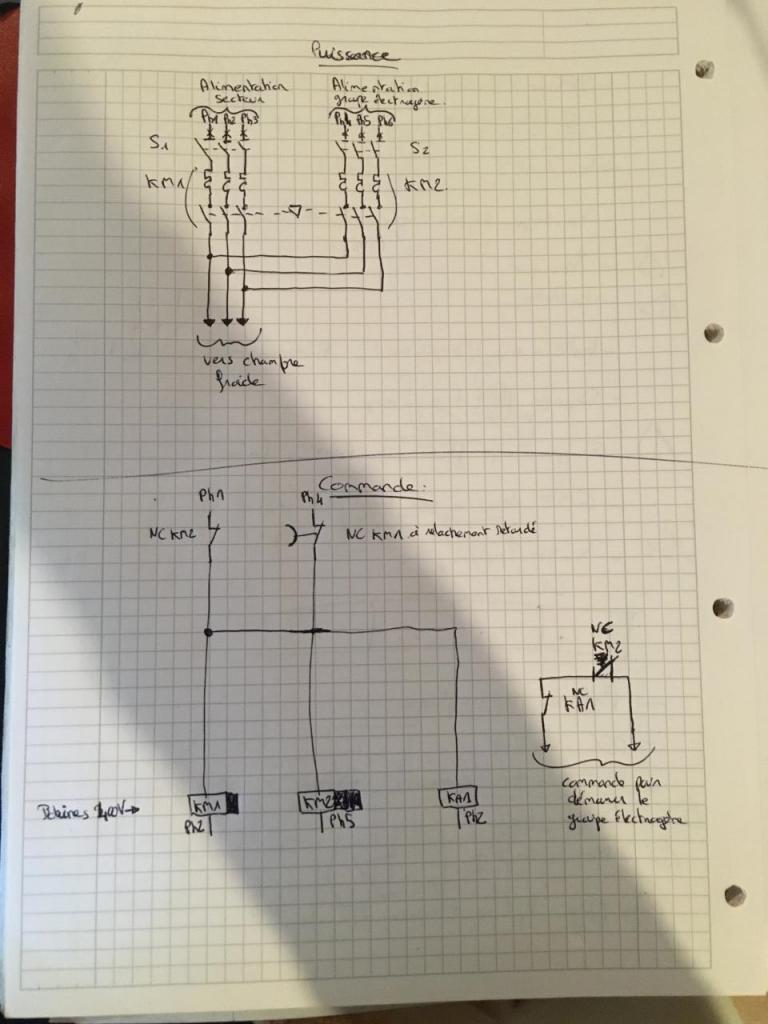 Puissance
Alimentation
secteur
Alimentation
groupe électrogène.
Ph1 Ph2 Ph3
Ph4 Ph5 Ph6
S1
S2
KM1
KM2.
vers champre
froide
Commande:
Ph1
Ph4
NC KM2
NC KM1 à relachement retardé
NC
KM2
NC
KA1
commande pour
démarrer le
groupe électrogène
Bobines 400V →
KM1
KM2
KA1
Ph2
Ph5
Ph2